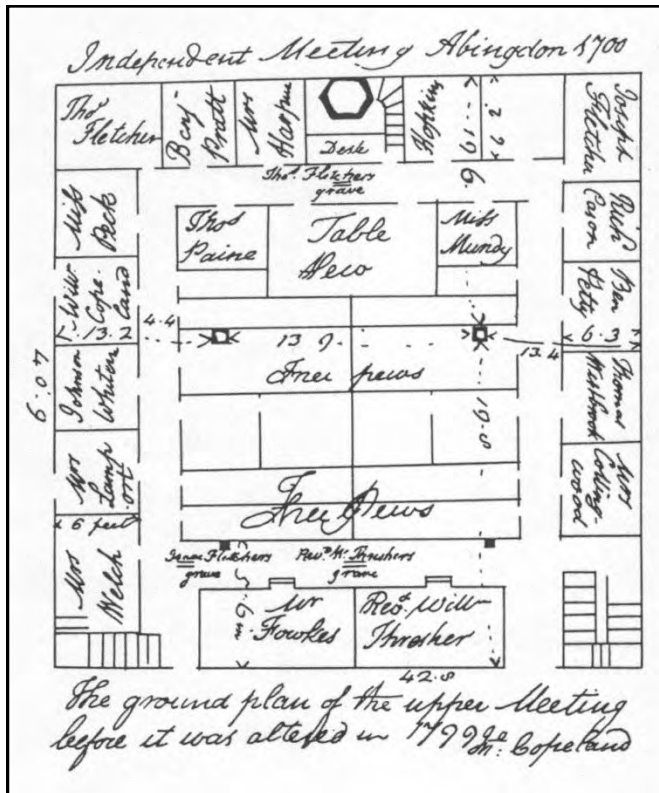 Independent Meeting Abingdon 1700
Thos
Fletcher
Benj
Pratt
Mrs
Harpur
Desk
Hopkins
6.2
Joseph
Fletcher
Thos. Fletchers
grave
Miss
Beck
Thos
Paine
Table
Pew
Miss
Mundy
Richd
Cason
Willm
Cope-
land
13.2
4.4
13.9
13.4
Ben
Petty
6.3
40.9
Johnson
Whiten
Free pews
Thomas
Westbrook
19.8
Mrs
Lamp
ort
Mrs
Colling-
wood
Free Pews
6 feet
Mrs
Welch
Isaac Fletchers
grave
Revd. Mr. Threshers
grave
Mr
Fowkes
Revd. Willm
Thresher
42.8
The ground plan of the upper Meeting
before it was altered in 1799
Copeland